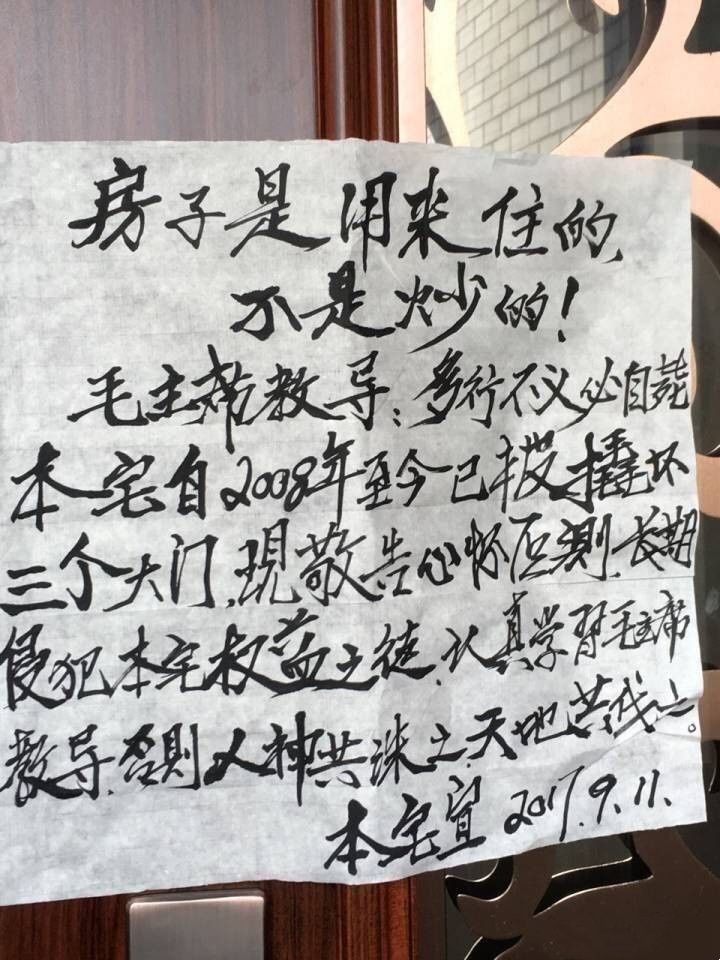 房子是用来住的,
不是炒的!
毛主席教导:多行不义必自毙
本宅自2008年至今已被撬坏
三个大门,現敬告心怀叵测,长期
侵犯本宅权益之徒,认真学習毛主席
教导,否則人神共诛之,天地共伐之。
本宅宣 2017.9.11.